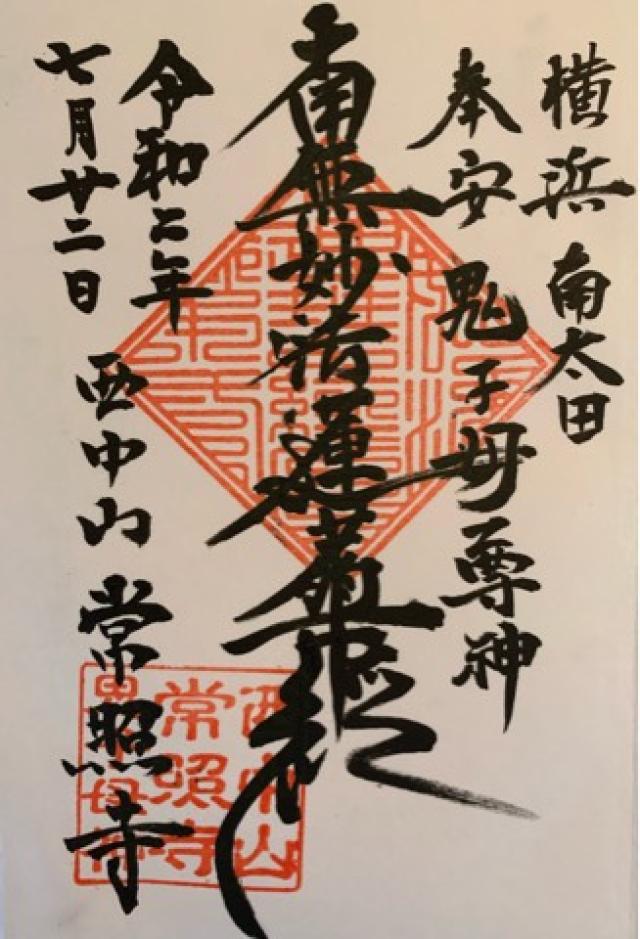 横浜南太田
奉安鬼子母尊神
南無妙法蓮華経
令和二年
七月廿二日
西中山常照寺
西中山
常照寺
鬼子母神